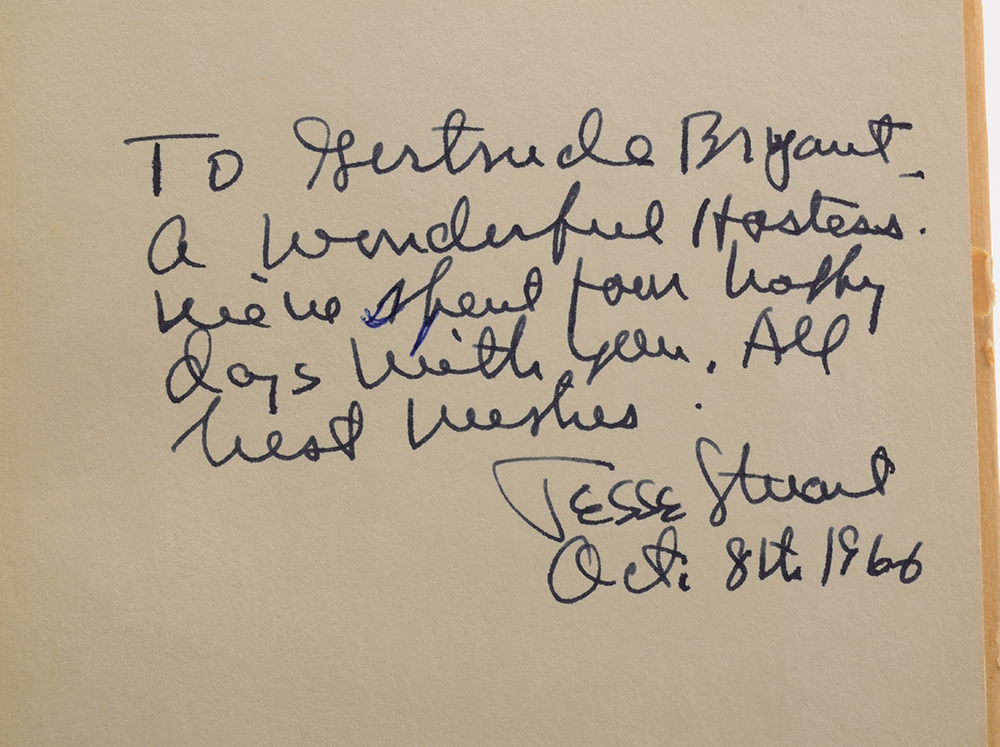 To Gertrude Bryant –
A Wonderful Hostess.
We've spent four happy
days with you. All
best wishes.
Jesse Stuart
Oct. 8th. 1966